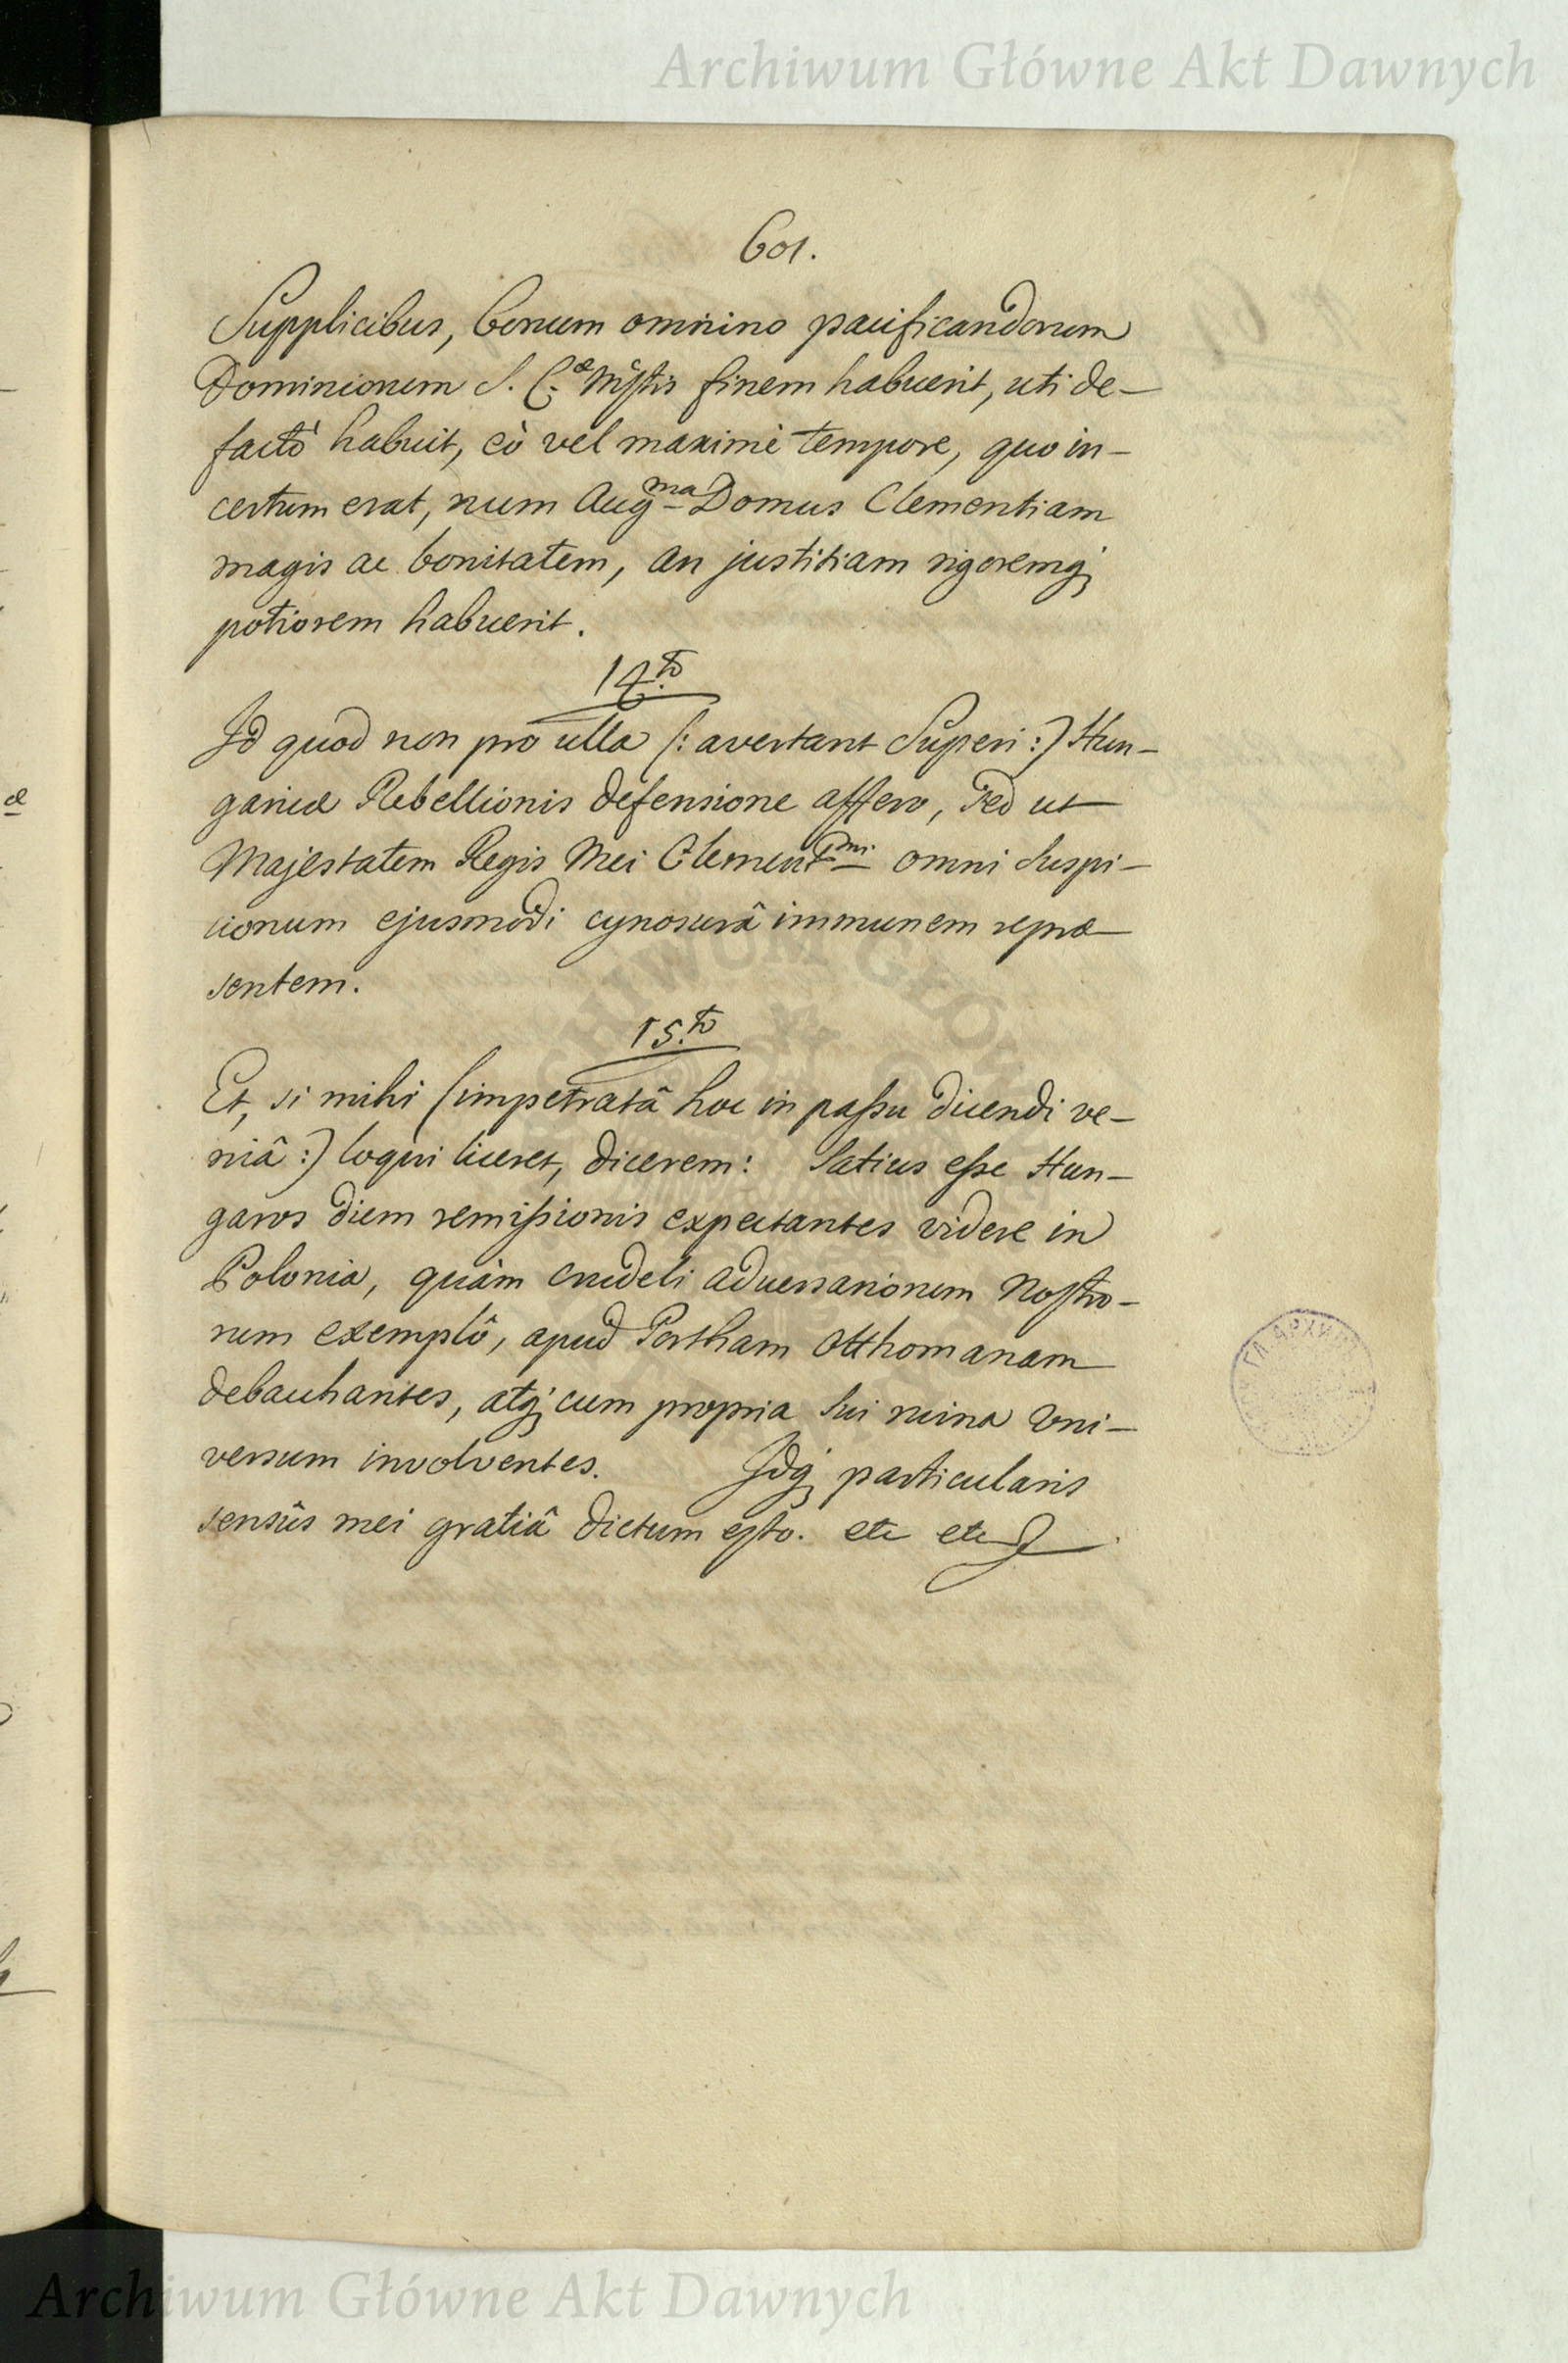 Archiwum Główne Akt Dawnych
601.
Supplicibus, bonum omnino pacificandorum
Dominiorum S. C.æ Mſtis finem habuerit, uti de-
factò habuit, eò vel maximè tempore, quo in-
certum erat, num Augma Domus Clementiam
magis ac bonitatem, an justitiam rigoremq;
potiorem habuerit.
14.to
Id quod non pro ulla (: avertant Superi :) Hun-
garicæ Rebellionis defensione affero, sed ut
Majestatem Regis Mei Clementsmi omni suspi-
cionum ejusmodi cynosurâ immunem repræ
sentem.
15.to
Et, si mihi (impetratâ hoc in paſsu dicendi ve-
niâ :) loqui liceret, dicerem: Satius eſse Hun-
garos diem remiſsionis expectantes videre in
Polonia, quàm crudeli adversariorum noſtro-
rum exemplô, apud Portham Otthomanam
debachantes, atq; cum propria sui ruina Uni-
versum involventes. Idq; particularis
sensûs mei gratiâ dictum eſto. etc etc
Archiwum Główne Akt Dawnych